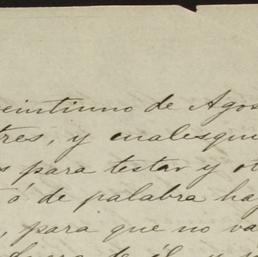 veintiuno de Agos
tres, y cualesqui
s para testar y ot
ó de palabra ha
, para que no va